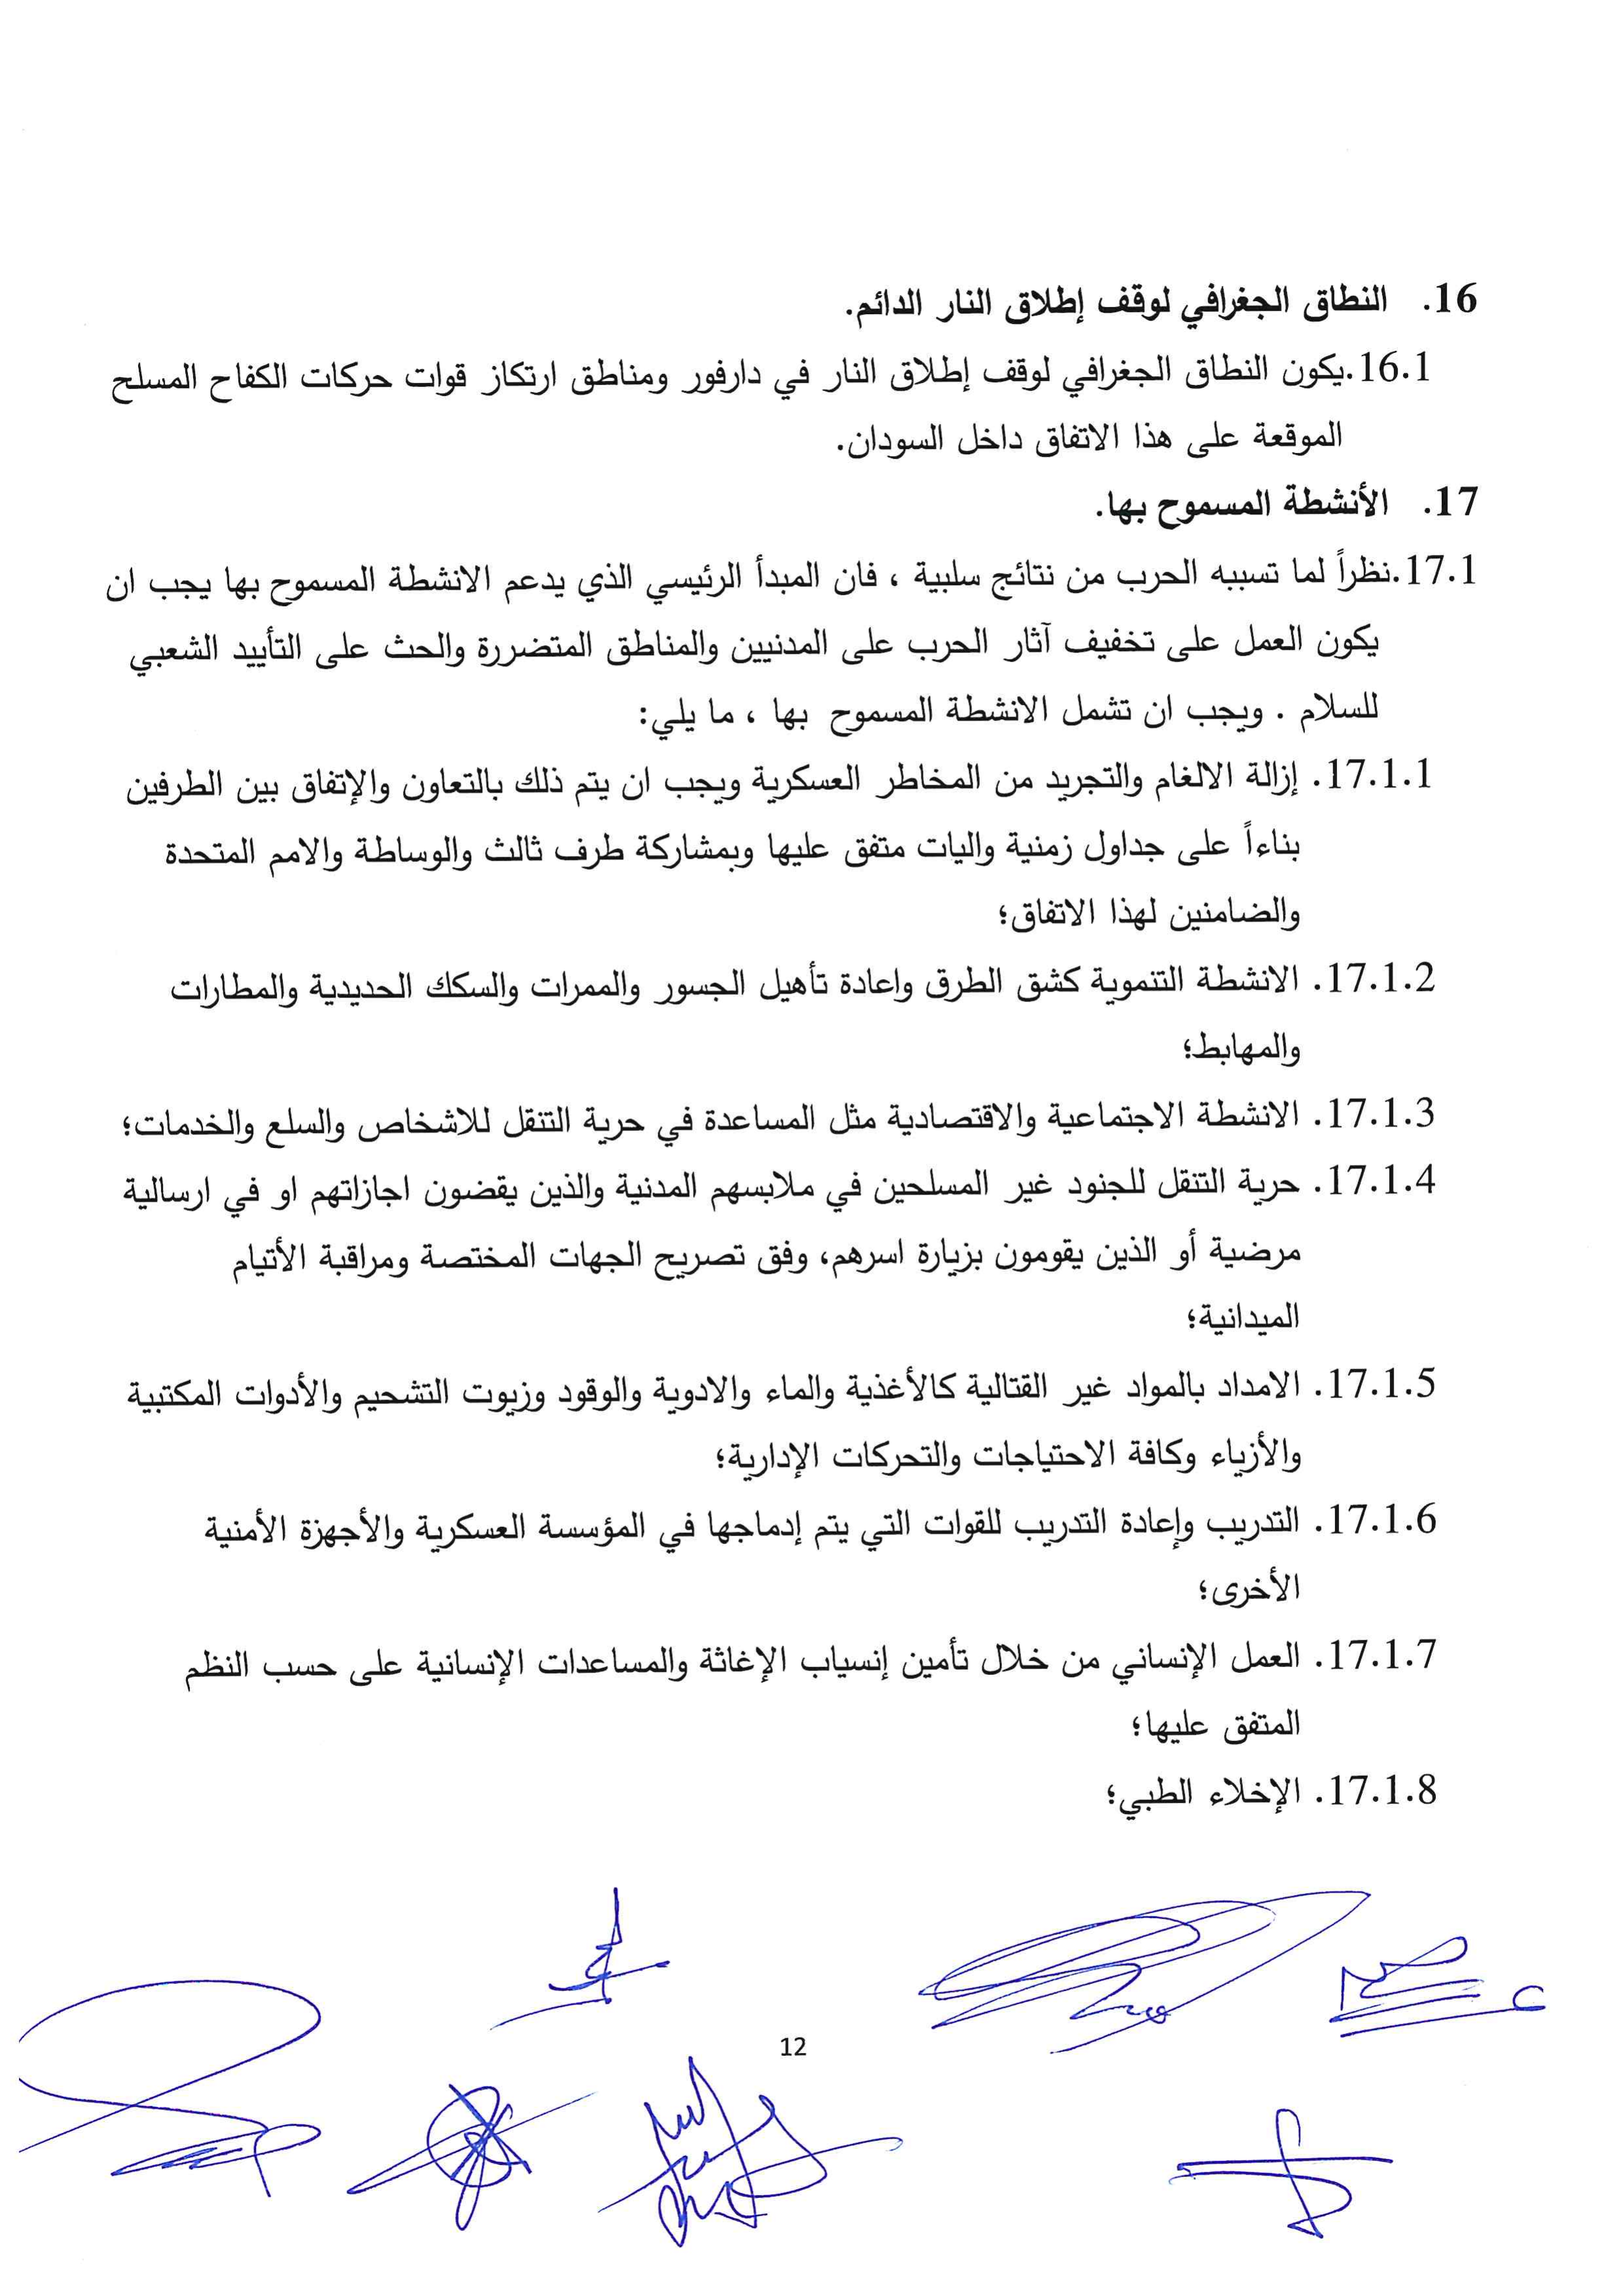 16. النطاق الجغرافي لوقف إطلاق النار الدائم.
16.1.يكون النطاق الجغرافي لوقف إطلاق النار في دارفور ومناطق ارتكاز قوات حركات الكفاح المسلح
الموقعة على هذا الاتفاق داخل السودان.
17. الأنشطة المسموح بها.
17.1.نظراً لما تسببه الحرب من نتائج سلبية ، فان المبدأ الرئيسي الذي يدعم الانشطة المسموح بها يجب ان
يكون العمل على تخفيف آثار الحرب على المدنيين والمناطق المتضررة والحث على التأييد الشعبي
للسلام . ويجب ان تشمل الانشطة المسموح بها ، ما يلي:
17.1.1. إزالة الالغام والتجريد من المخاطر العسكرية ويجب ان يتم ذلك بالتعاون والإتفاق بين الطرفين
بناءاً على جداول زمنية واليات متفق عليها وبمشاركة طرف ثالث والوساطة والامم المتحدة
والضامنين لهذا الاتفاق؛
17.1.2. الانشطة التنموية كشق الطرق واعادة تأهيل الجسور والممرات والسكك الحديدية والمطارات
والمهابط؛
17.1.3. الانشطة الاجتماعية والاقتصادية مثل المساعدة في حرية التنقل للاشخاص والسلع والخدمات؛
17.1.4. حرية التنقل للجنود غير المسلحين في ملابسهم المدنية والذين يقضون اجازاتهم او في ارسالية
مرضية أو الذين يقومون بزيارة اسرهم، وفق تصريح الجهات المختصة ومراقبة الأتيام
الميدانية؛
17.1.5. الامداد بالمواد غير القتالية كالأغذية والماء والادوية والوقود وزيوت التشحيم والأدوات المكتبية
والأزياء وكافة الاحتياجات والتحركات الإدارية؛
17.1.6. التدريب وإعادة التدريب للقوات التي يتم إدماجها في المؤسسة العسكرية والأجهزة الأمنية
الأخرى؛
17.1.7. العمل الإنساني من خلال تأمين إنسياب الإغاثة والمساعدات الإنسانية على حسب النظم
المتفق عليها؛
17.1.8. الإخلاء الطبي؛
12